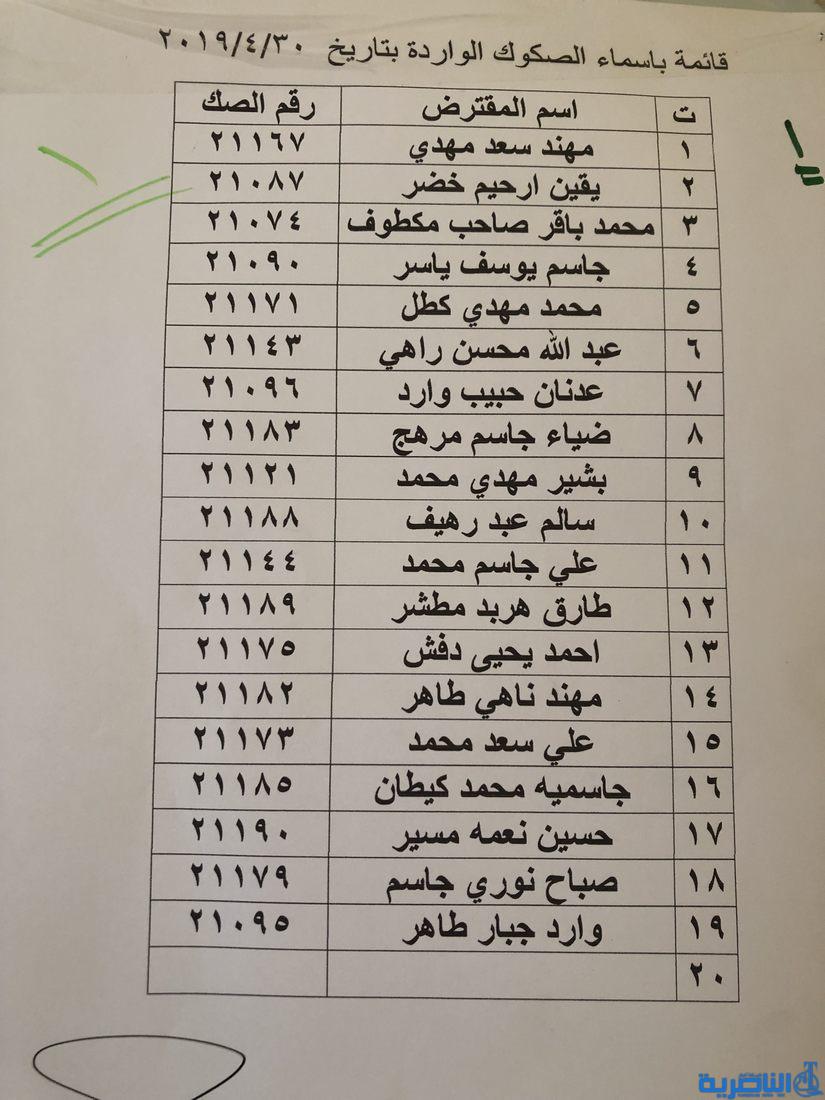 قائمة باسماء الصكوك الواردة بتاريخ ٢٠١٩/٤/٣٠
ت اسم المقترض رقم الصك
١ مهند سعد مهدي ٢١١٦٧
٢ يقين ارحيم خضر ٢١٠٨٧
٣ محمد باقر صاحب مكطوف ٢١٠٧٤
٤ جاسم يوسف ياسر ٢١٠٩٠
٥ محمد مهدي كطل ٢١١٧١
٦ عبد الله محسن راهي ٢١١٤٣
٧ عدنان حبيب وارد ٢١٠٩٦
٨ ضياء جاسم مرهج ٢١١٨٣
٩ بشير مهدي محمد ٢١١٢١
١٠ سالم عبد رهيف ٢١١٨٨
١١ علي جاسم محمد ٢١١٤٤
١٢ طارق هربد مطشر ٢١١٨٩
١٣ احمد يحيى دفش ٢١١٧٥
١٤ مهند ناهي طاهر ٢١١٨٢
١٥ علي سعد محمد ٢١١٧٣
١٦ جاسميه محمد كيطان ٢١١٨٥
١٧ حسين نعمه مسير ٢١١٩٠
١٨ صباح نوري جاسم ٢١١٧٩
١٩ وارد جبار طاهر ٢١٠٩٥
٢٠
الناصرية